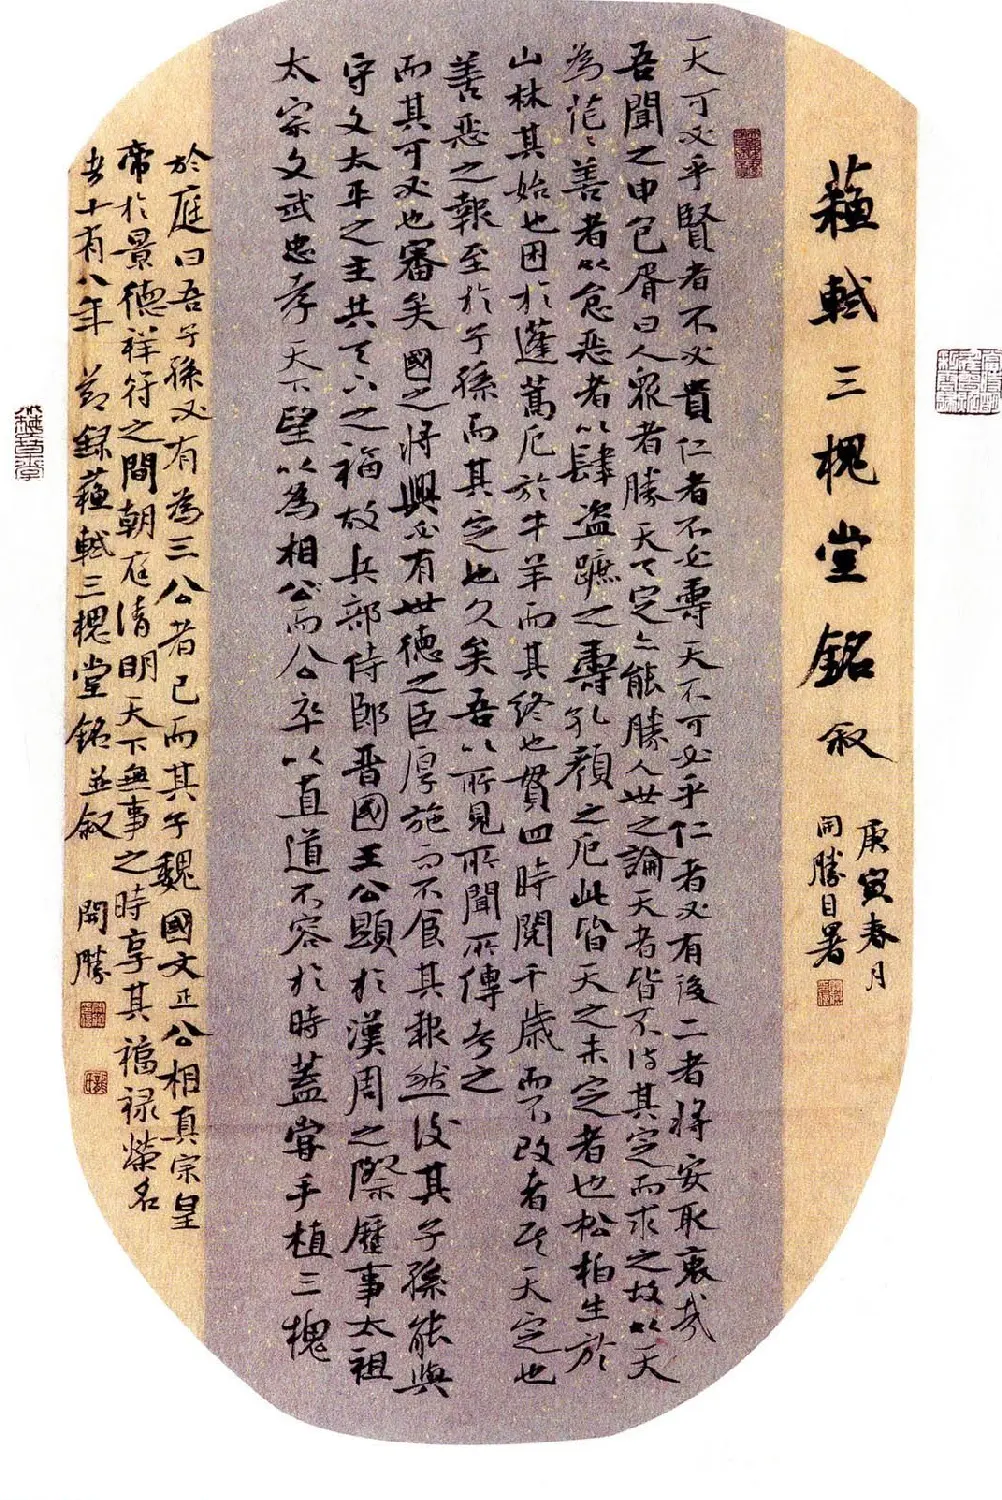 蘓軾三槐堂銘叙
庚寅春月
開勝自署
天可必乎賢者不必貴仁者不必壽天不可必乎仁者必有後二者将安取衷哉
吾聞之申包胥曰人衆者勝天天定亦能勝人世之論天者皆不待其定而求之故以天
為茫〻善者以怠惡者以肆盗蹠之壽孔顔之厄此皆天之未定者也松柏生於
山林其始也困於蓬蒿厄於牛羊而其終也貫四時閱千歲而不改者其天定也
善惡之報至於子孫而其定也久矣吾以所見所聞所傳考之
而其可必也審矣國之将興必有世德之臣厚施而不食其報然後其子孫能與
守文太平之主共天下之福故兵部侍郎晋國王公顯於漢周之際歷事太祖
太宗文武忠孝天下望以為相公而公卒以直道不容於時蓋嘗手植三槐
於庭曰吾子孫必有為三公者已而其子魏國文正公相真宗皇
帝於景德祥符之間朝廷清明天下無事之時享其福禄榮名
者十有八年 節録蘓軾三槐堂銘並叙 開勝